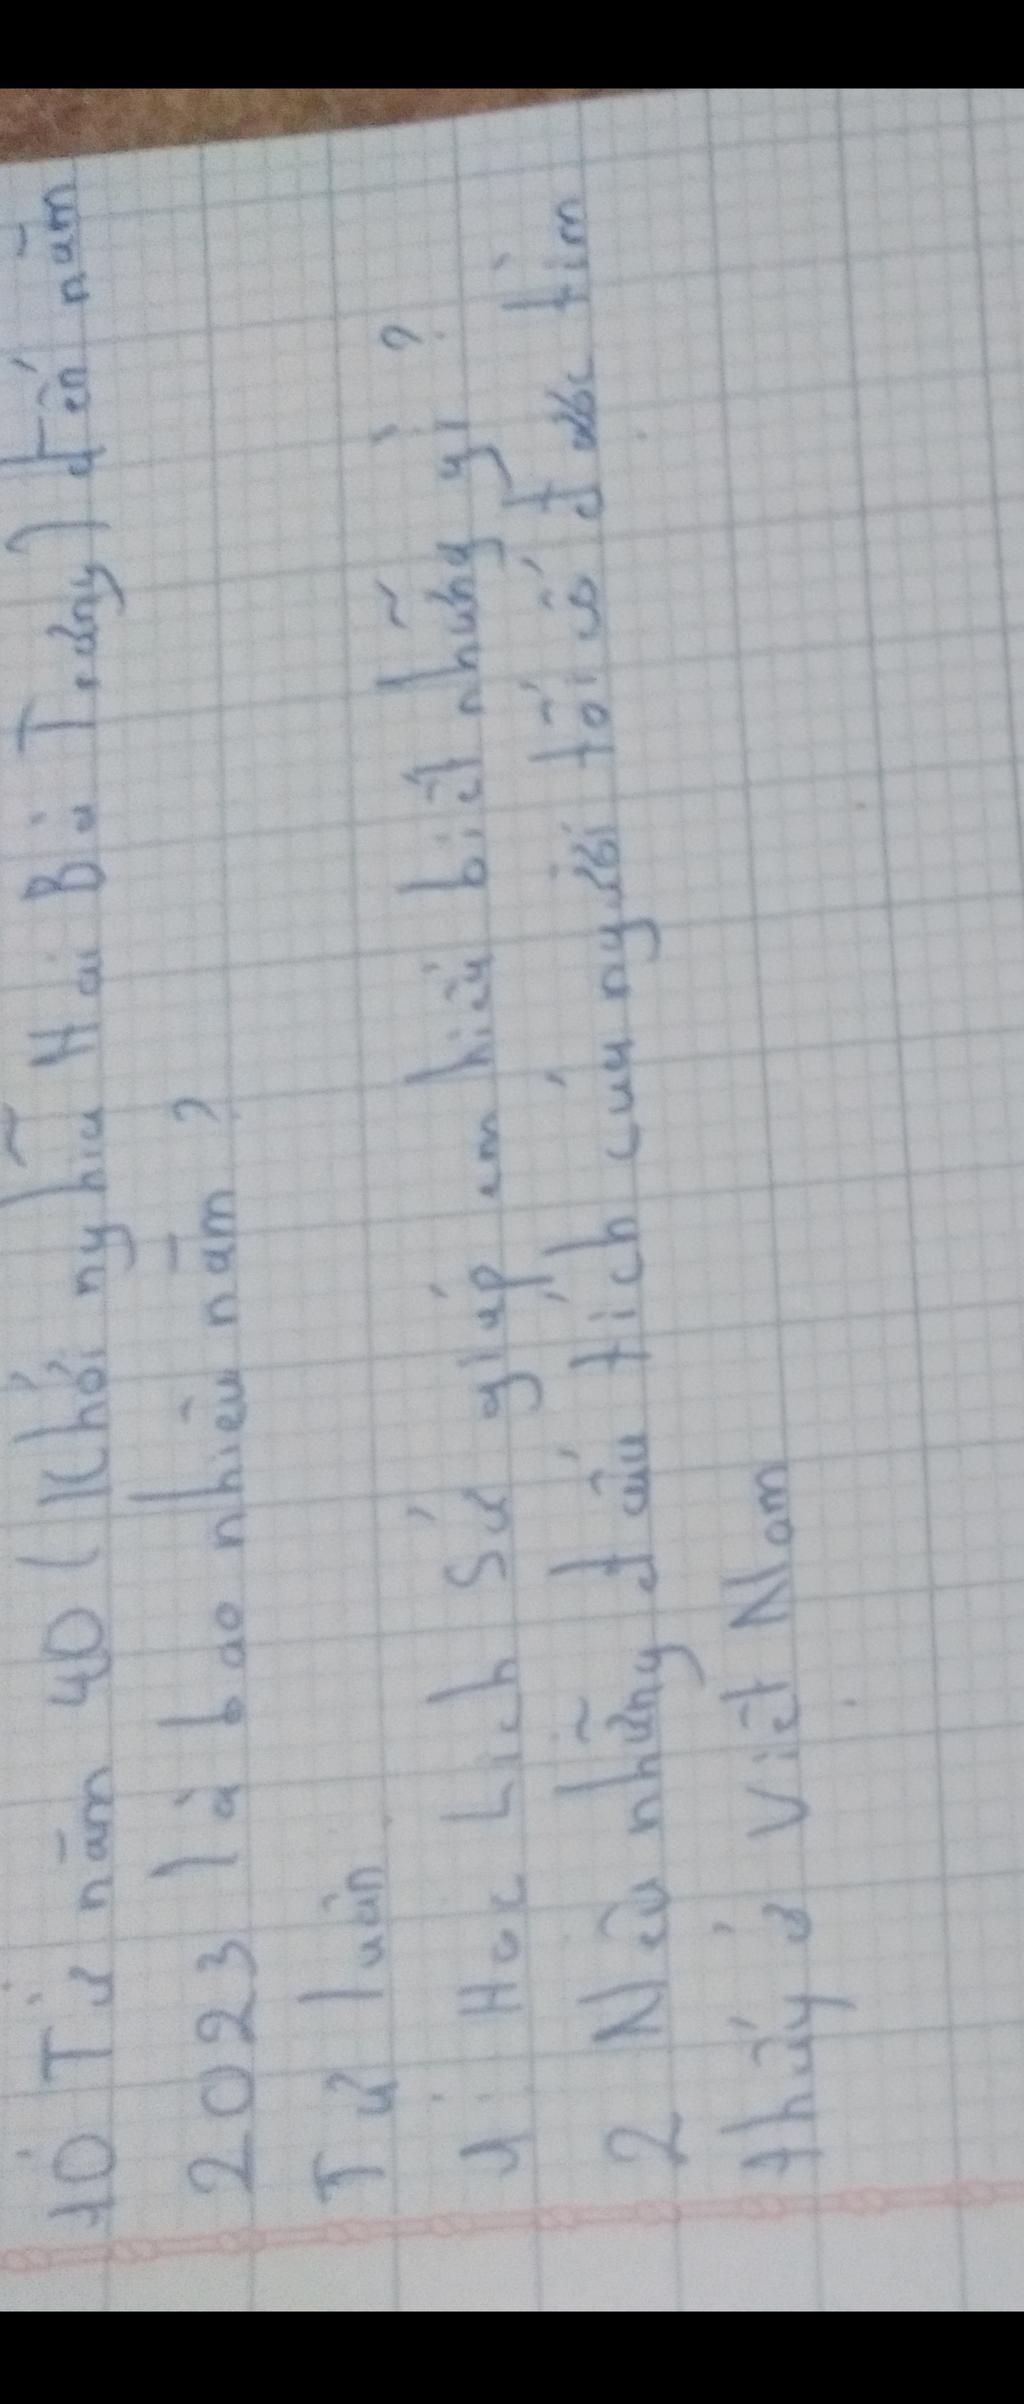 10 Từ năm 40 (Khởi nghĩa Hai Bà Trưng) đến năm
2023 là bao nhiêu năm ?
Tự luận
1. Học Lịch Sử giúp em hiểu biết những gì ?
2 Nêu những dấu tích của người tối cổ được tìm
thấy ở Việt Nam